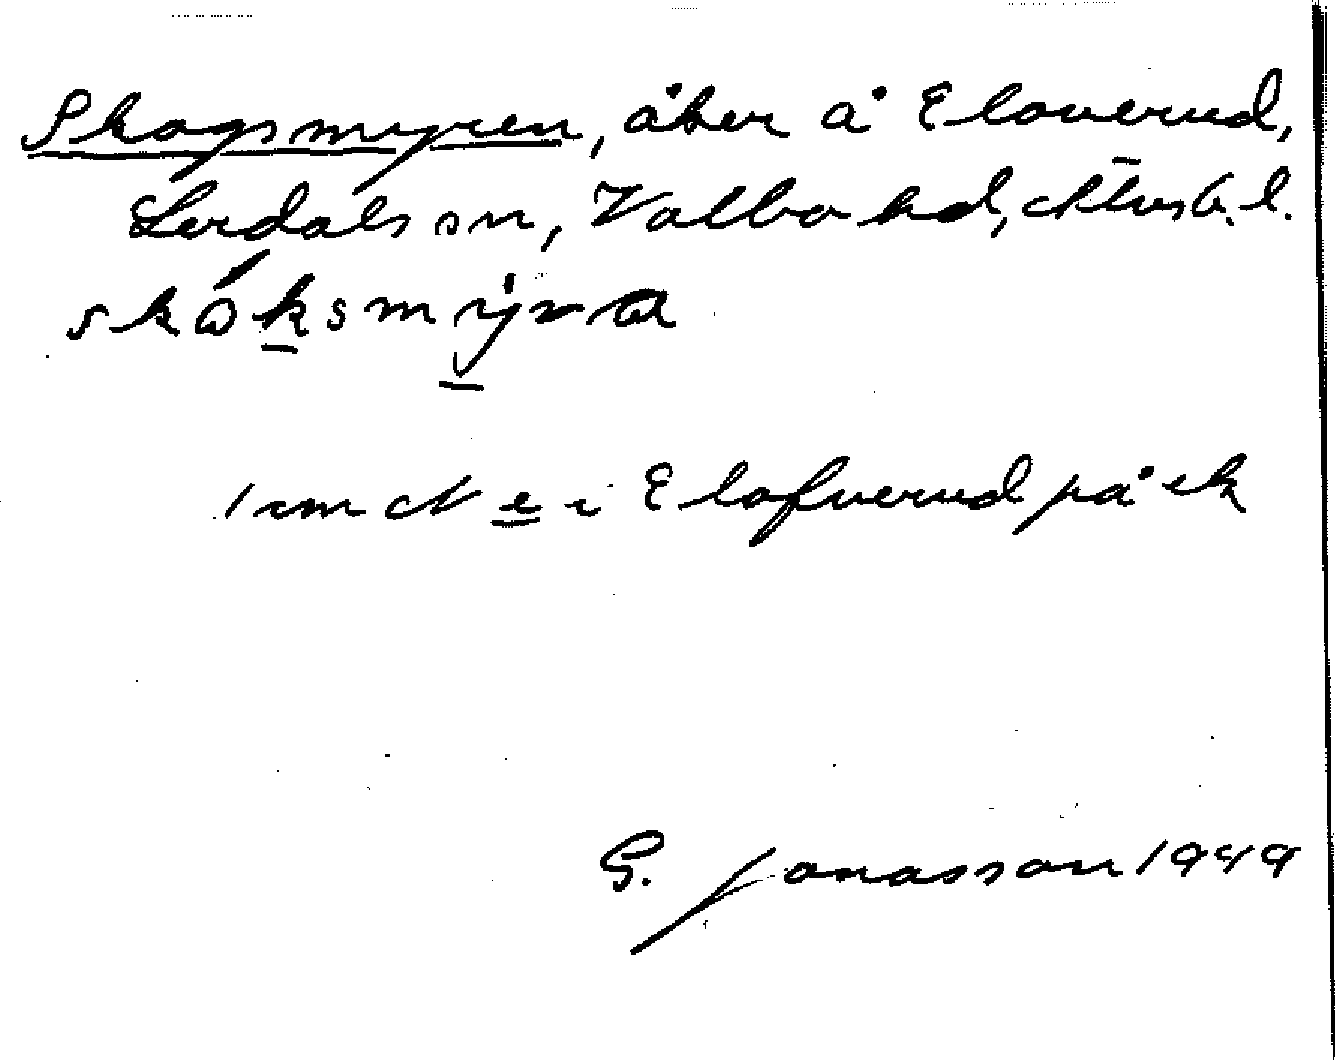 Skogsmyren, åker å Elaverud,
Lerdals sn, Valbo hd, Älvsb. l.
skòksmỳra
1 cm N e i Elafverud på ek
G. Jonasson 1949